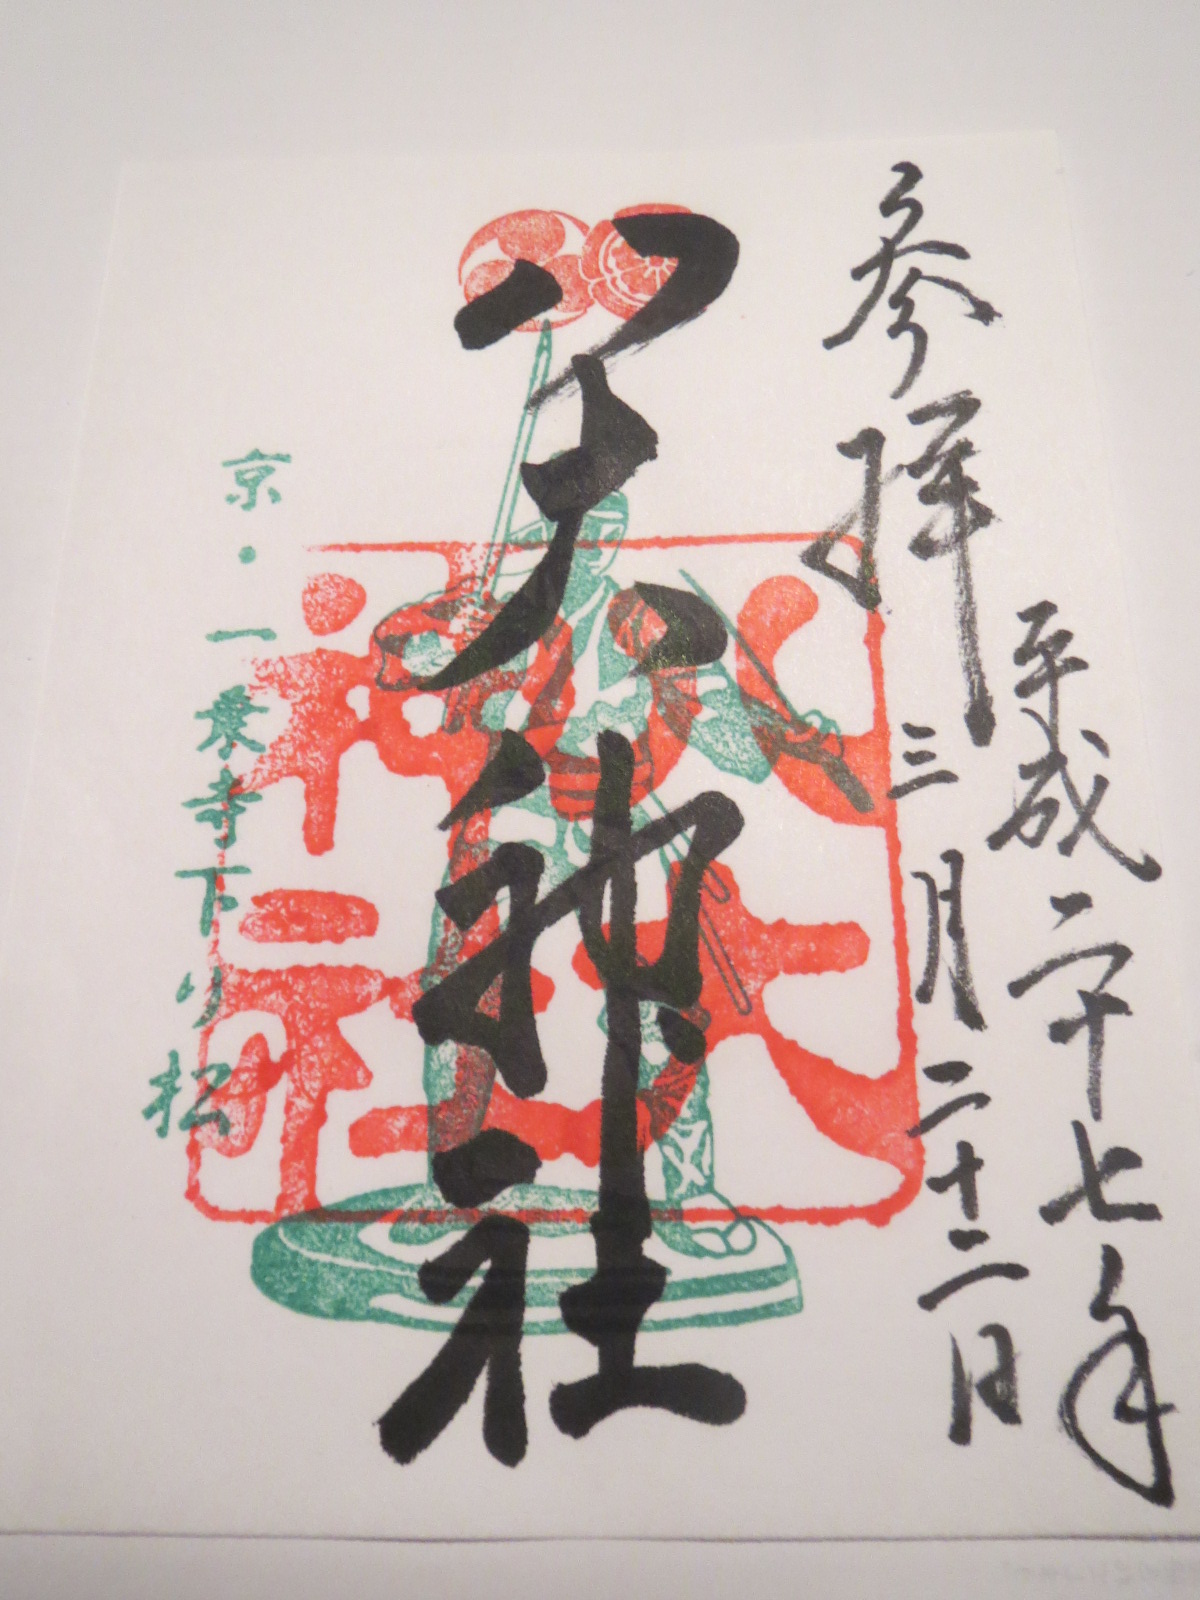 参拝
平成二十七年
三月二十二日
八大神社
八大
神社
京・一乗寺下り松